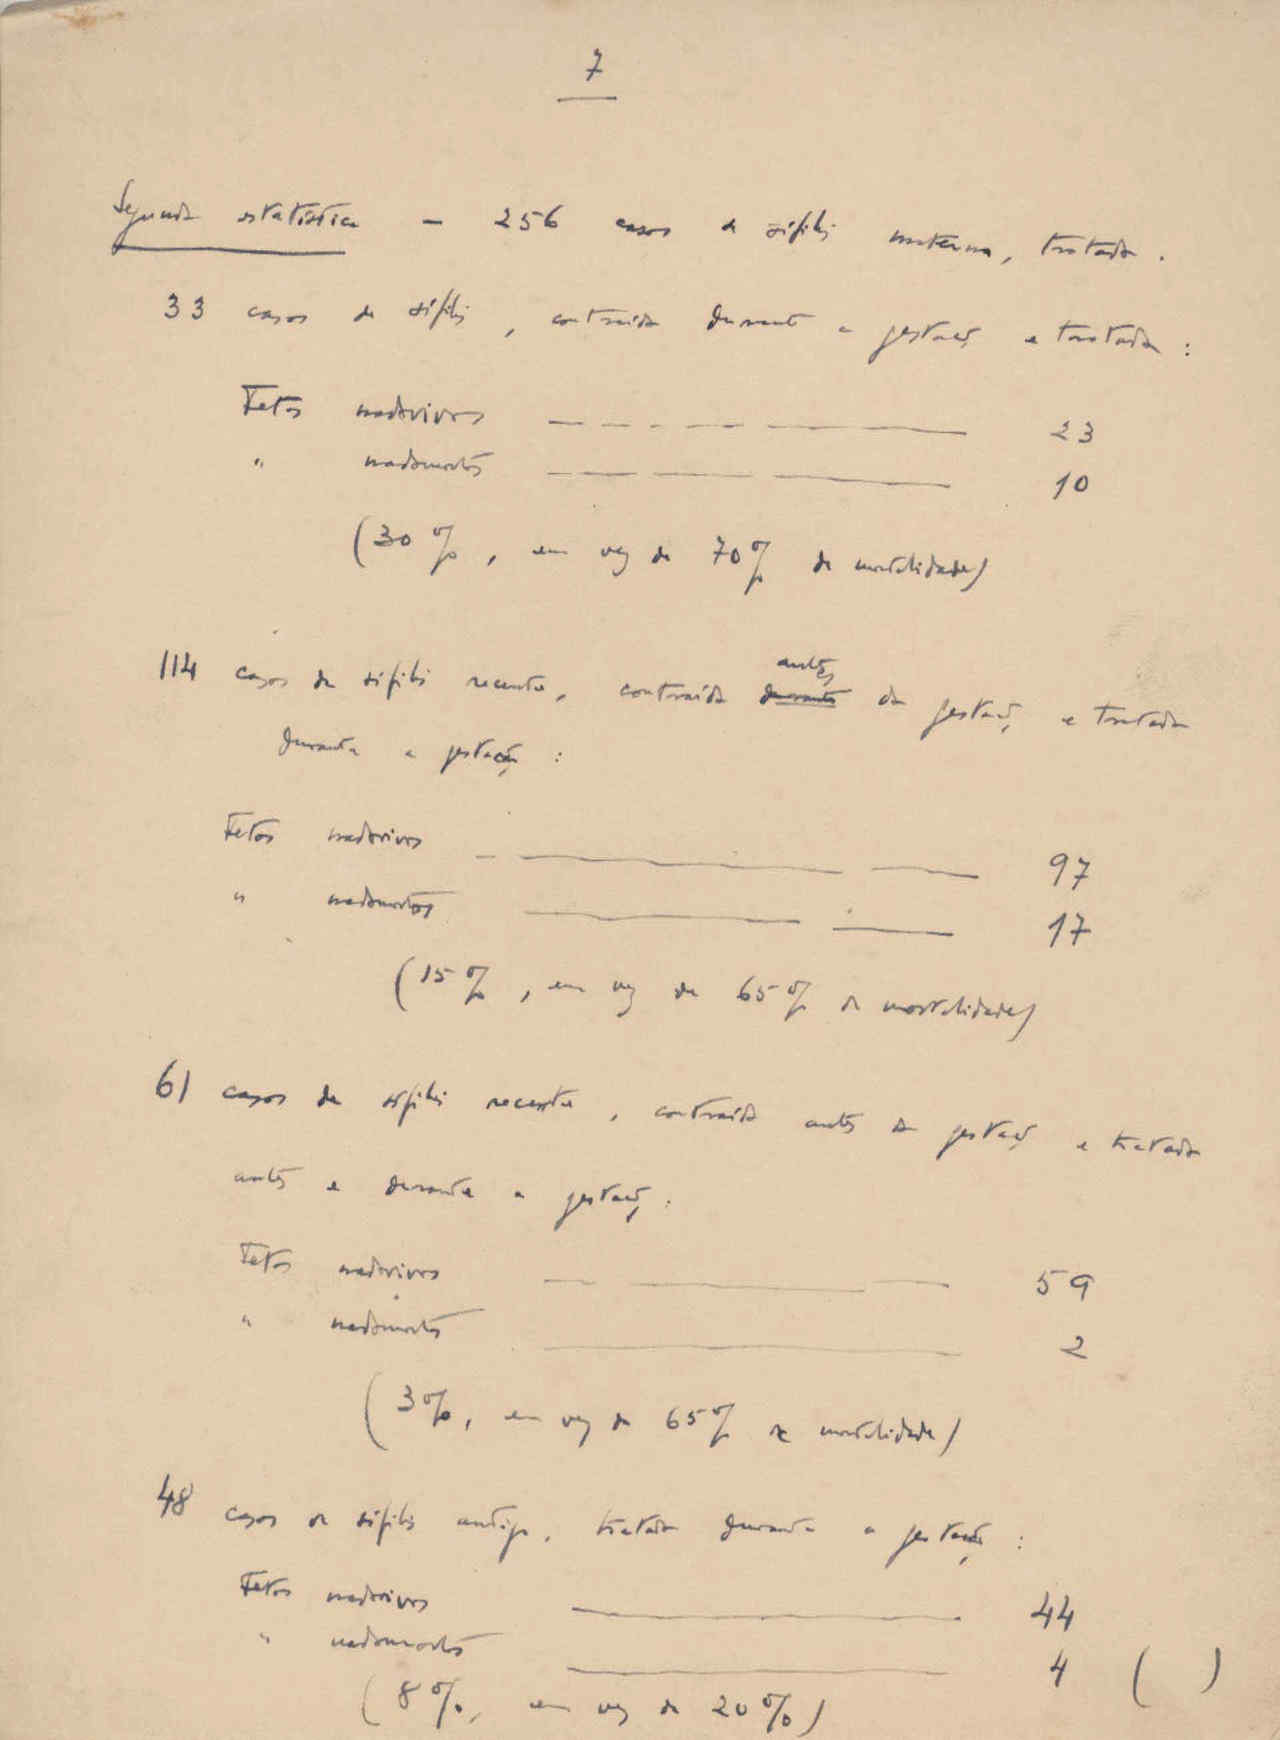 7
Segunda estatística — 256 casos de sífilis materna, tratada.
33 casos de sífilis, contraída durante a gestação e tratada :
Fetos nadovivos — — — — — 23
" nadomortos — — — 10
(30%, em vez de 70% de mortalidade)
114 casos de sífilis recente, contraída durante antes da gestação e tratada
durante a gestação :
Fetos nadovivos — — — 97
" nadomortos — — 17
(15%, em vez de 65% de mortalidade)
61 casos de sífilis recente, contraída antes da gestação e tratada
antes e durante a gestação :
Fetos nadovivos — — — 59
" nadomortos — 2
(3%, em vez de 65% de mortalidade)
48 casos de sífilis antiga, tratada durante a gestação :
Fetos nadovivos — 44
" nadomortos — 4 ( )
(8%, em vez de 20%)